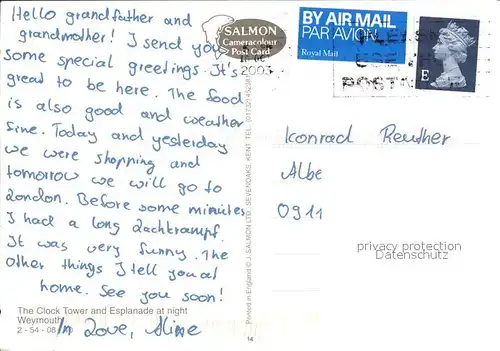 Hello grandfather and
grandmother! I send you
some special greetings. It's
great to be here. The food
is also good and weather
fine. Today and yesterday
we were shopping and
tomorrow we will go to
London. Before some minutes
I had a long Lachkrampf.
It was very funny. The
other things I tell you at
home. See you soon!
In Love, Aline
The Clock Tower and Esplanade at night
Weymouth
2 - 54 - 08
SALMON
Cameracolour
Post Card
2003
BY AIR MAIL
PAR AVION
Royal Mail
E
POSTCODE
Printed in England © J. SALMON LTD., SEVENOAKS, KENT. TEL.
14
Konrad Reuther
Albe
0911
privacy protection
Datenschutz